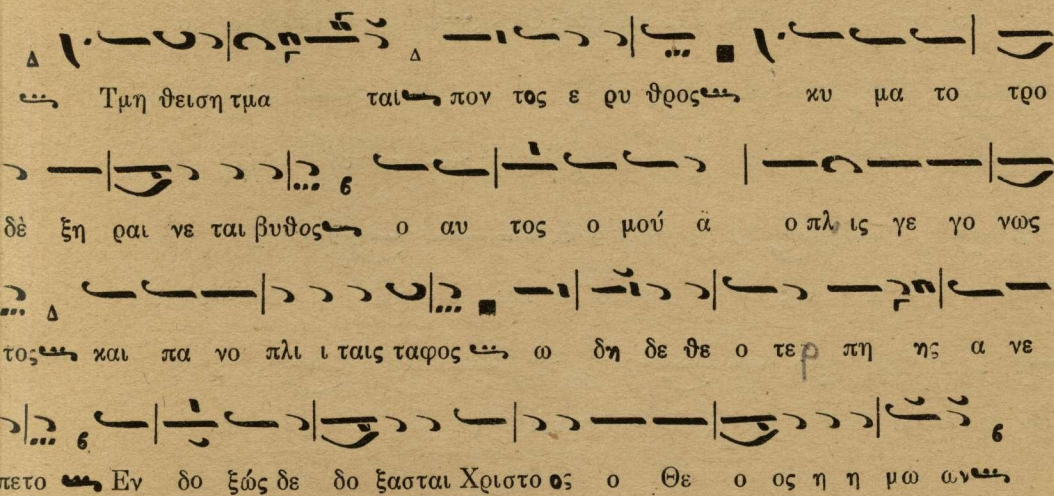 Τμη θειση τμα ται πον τος ε ρυ θρος κυ μα το τρο
δὲ ξη ραι νε ται βυθος ο αυ τος ο μού α ο πλ ις γε γο νως
τος και πα νο πλι ι ταις ταφος ω δη δε θε ο τε ρ πη ης α νε
πετο Εν δο ξώς δε δο ξασται Χριστο ος ο Θε ο ος η η μω ων